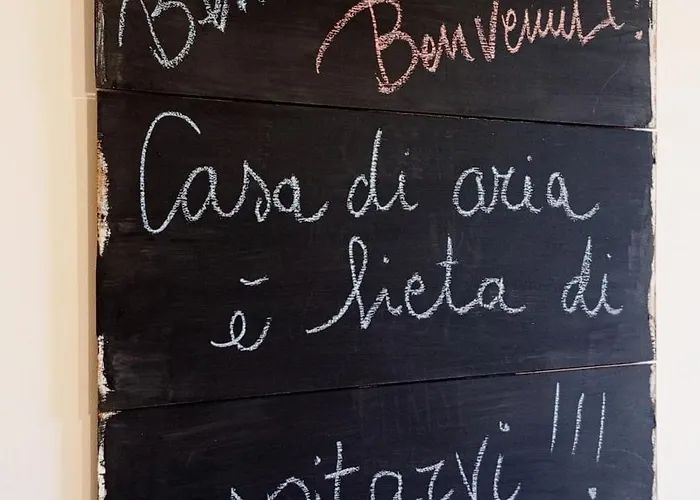 Ben Benvenuti!
Casa di aria
è lieta di
ospitarvi !!!